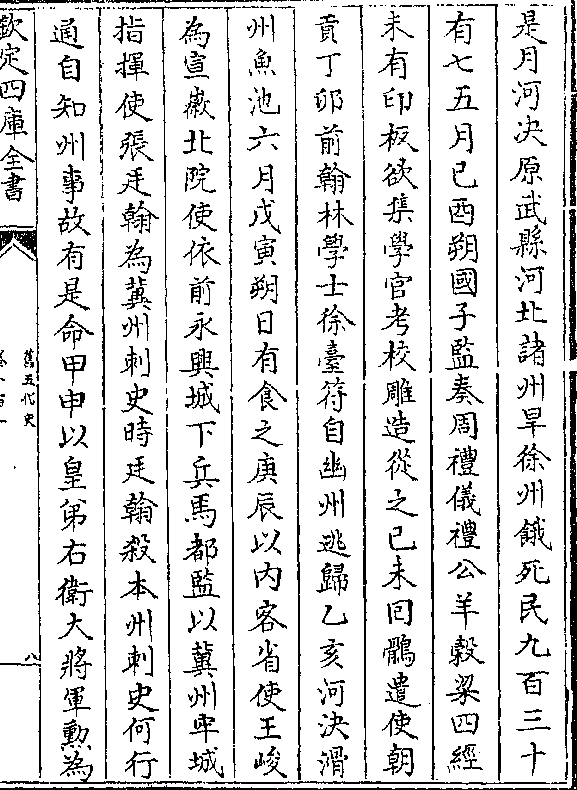 是月河決原武縣河北諸州旱徐州餓死民九百三十
有七五月已酉朔國子監奏周禮儀禮公羊穀梁四經
未有印板欲集學官考校雕造從之已未回鶻遣使朝
貢丁卯前翰林學士徐臺符自幽州逃歸乙亥河決滑
州魚池六月戊寅朔日有食之庚辰以内客省使王峻
為宣徽北院使依前永興城下兵馬都監以冀州牢城
指揮使張廷翰為冀州刺史時廷翰殺本州刺史何行
通自知州事故有是命甲申以皇弟右衛大將軍勲為
欽定四庫全書
舊五代史
八